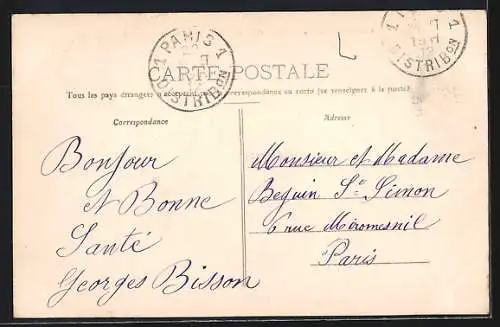 1 PARIS 1
DISTRIBON
1
1
DISTRIBON
CARTE POSTALE
Tous les pays étrangers n'acceptent pas la correspondance au recto (se renseigner à la poste)
Correspondance
Adresse
Bonjour
et Bonne
Santé
Georges Bisson
Monsieur et Madame
Beguin St Simon
6 rue Miromesnil
Paris